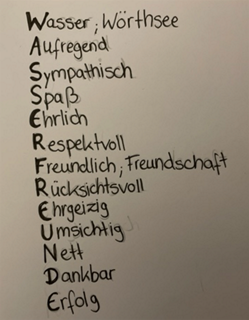 Wasser; Wörthsee
Aufregend
Sympathisch
Spaß
Ehrlich
Respektvoll
Freundlich; Freundschaft
Rücksichtsvoll
Ehrgeizig
Umsichtig
Nett
Dankbar
Erfolg